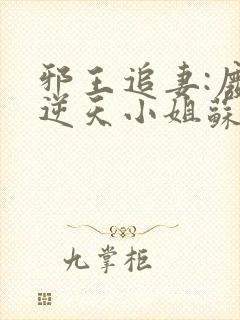 邪王追妻:廢
逆天小姐蘇
九掌柜